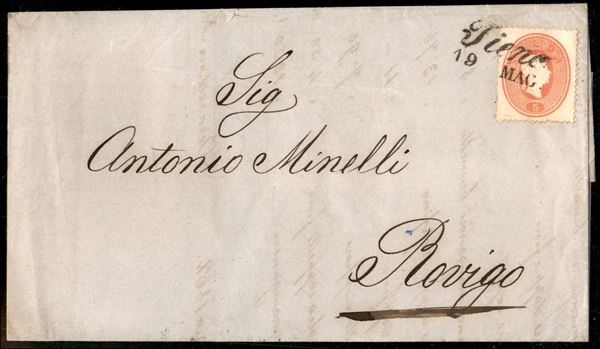 Tiene
19
MAG
5
Sig
Antonio Minelli
Rovigo